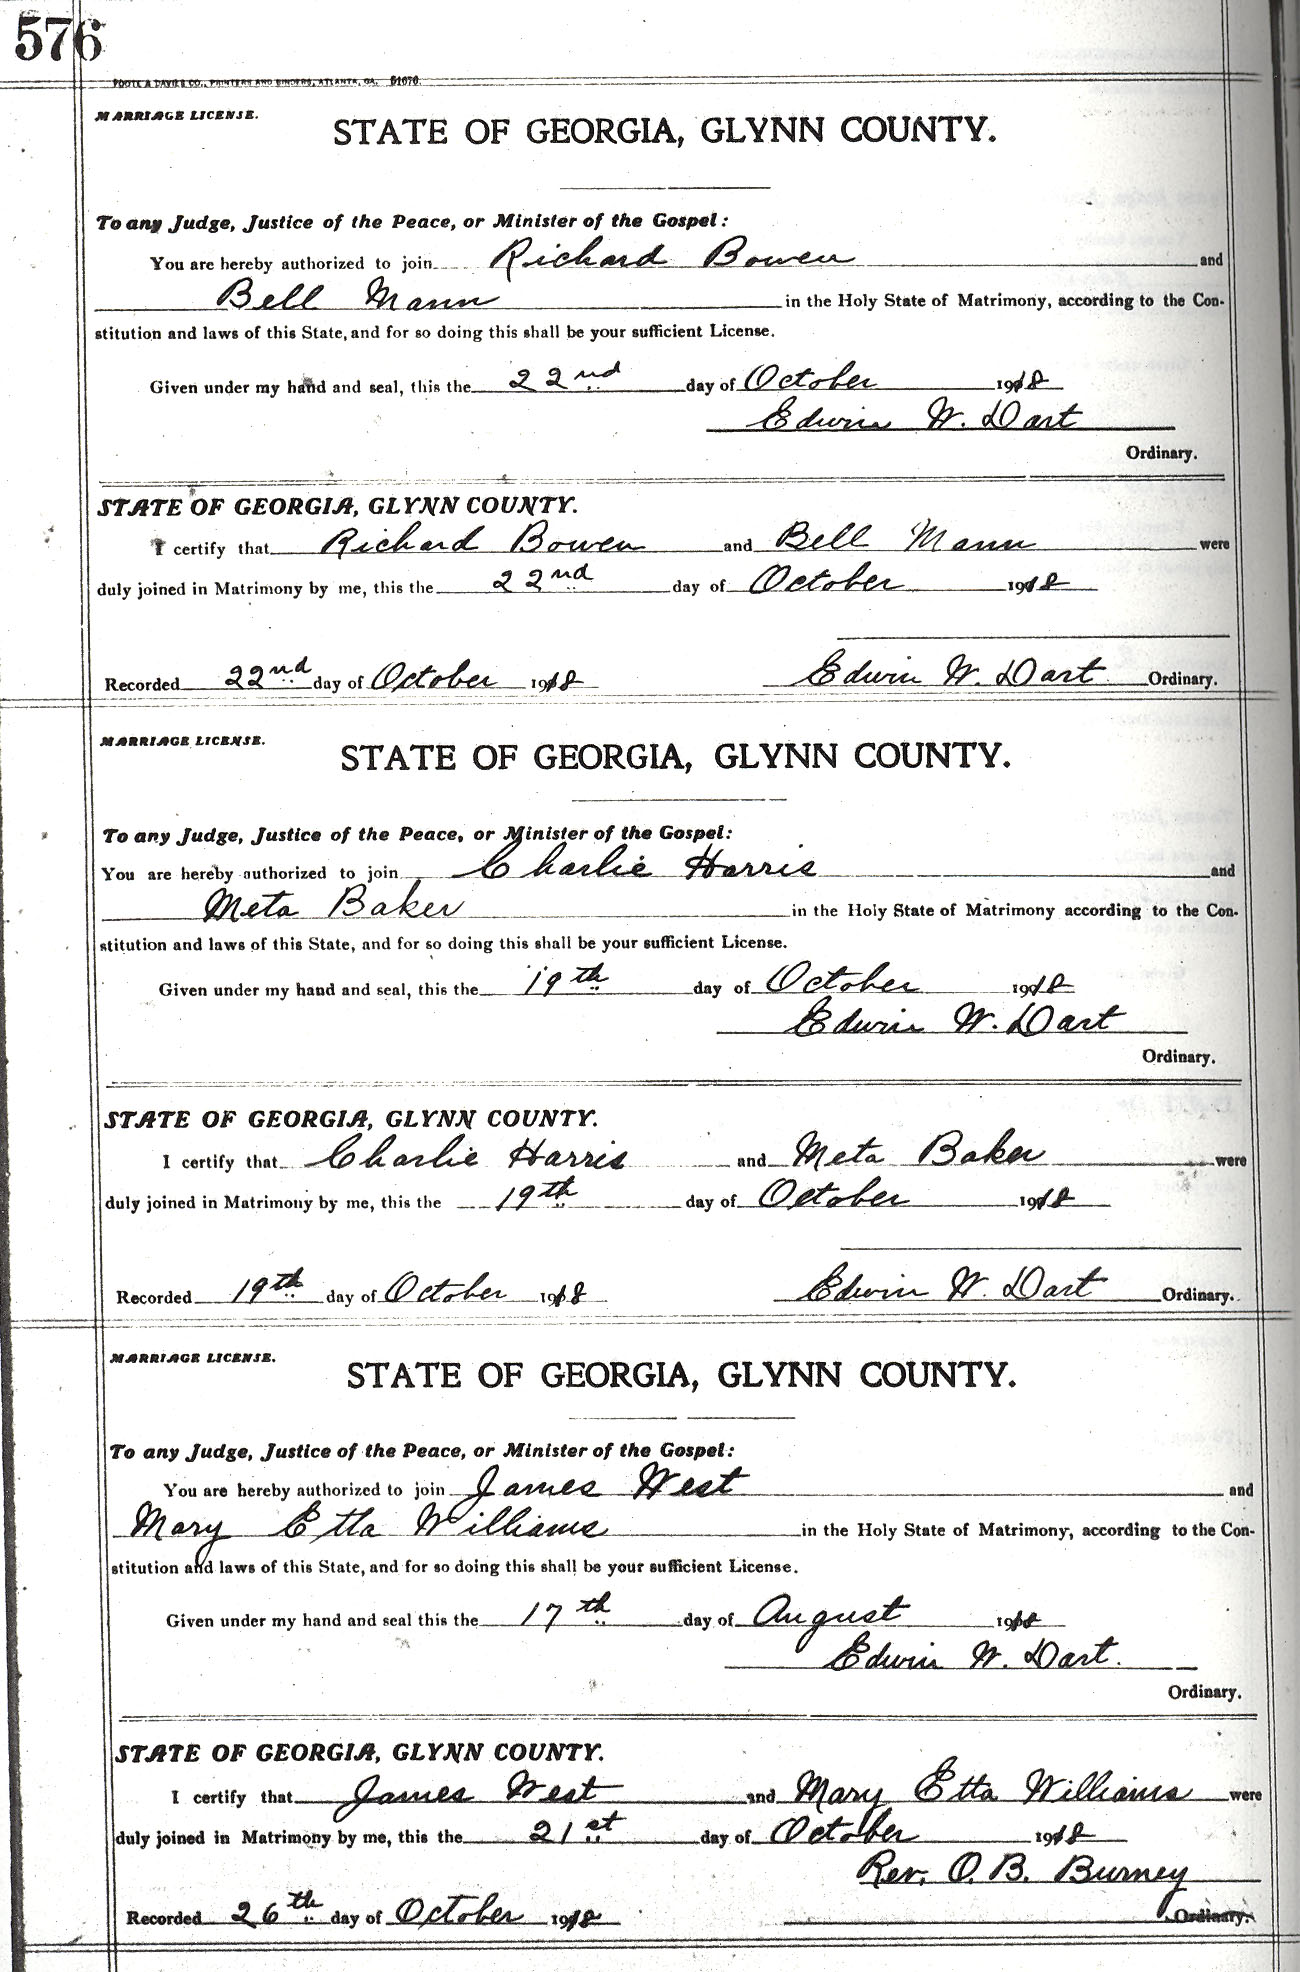 576
FOOTE & DAVIES CO., PRINTERS AND BINDERS, ATLANTA, GA. 51676
MARRIAGE LICENSE.
STATE OF GEORGIA, GLYNN COUNTY.
To any Judge, Justice of the Peace, or Minister of the Gospel:
You are hereby authorized to join Richard Bowen and
Bell Mann in the Holy State of Matrimony, according to the Con-
stitution and laws of this State, and for so doing this shall be your sufficient License.
Given under my hand and seal, this the 22nd day of October 1918
Edwin W. Dart
Ordinary.
STATE OF GEORGIA, GLYNN COUNTY.
I certify that Richard Bowen and Bell Mann were
duly joined in Matrimony by me, this the 22nd day of October 1918
Recorded 22nd day of October 1918 Edwin W. Dart Ordinary.
MARRIAGE LICENSE.
STATE OF GEORGIA, GLYNN COUNTY.
To any Judge, Justice of the Peace, or Minister of the Gospel:
You are hereby authorized to join Charlie Harris and
Meta Baker in the Holy State of Matrimony according to the Con-
stitution and laws of this State, and for so doing this shall be your sufficient License.
Given under my hand and seal, this the 19th day of October 1918
Edwin W. Dart
Ordinary.
STATE OF GEORGIA, GLYNN COUNTY.
I certify that Charlie Harris and Meta Baker were
duly joined in Matrimony by me, this the 19th day of October 1918
Recorded 19th day of October 1918 Edwin W. Dart Ordinary.
MARRIAGE LICENSE.
STATE OF GEORGIA, GLYNN COUNTY.
To any Judge, Justice of the Peace, or Minister of the Gospel:
You are hereby authorized to join James West and
Mary Etta Williams in the Holy State of Matrimony, according to the Con-
stitution and laws of this State, and for so doing this shall be your sufficient License.
Given under my hand and seal this the 17th day of August 1918
Edwin W. Dart.
Ordinary.
STATE OF GEORGIA, GLYNN COUNTY.
I certify that James West and Mary Etta Williams were
duly joined in Matrimony by me, this the 21st day of October 1918
Rev. O. B. Burney
Recorded 26th day of October 1918 Ordinary.